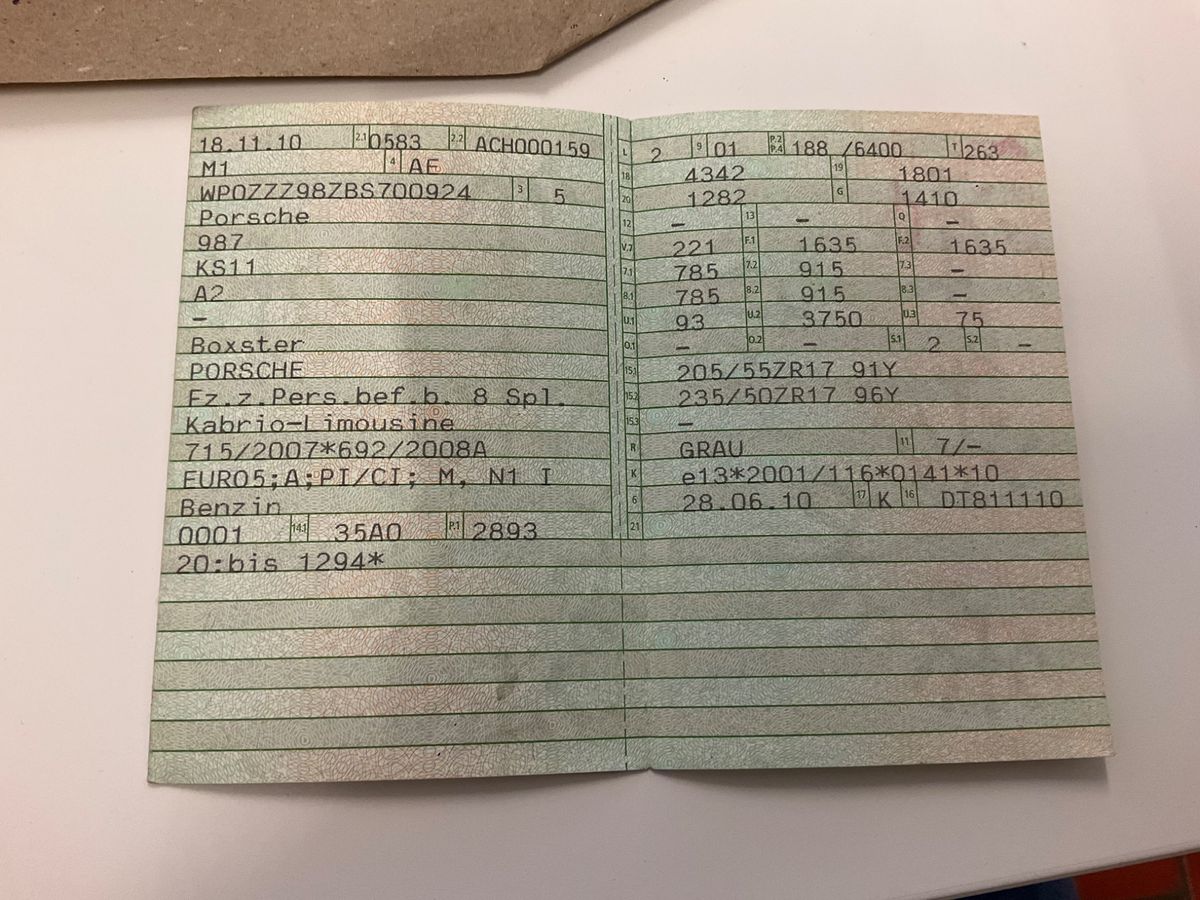 18.11.10 2.1 0583 2.2 ACH000159
M1 4 AF
WP0ZZZ98ZBS700924 3 5
Porsche
987
KS11
A2
–
Boxster
PORSCHE
Fz.z.Pers.bef.b. 8 Spl.
Kabrio-Limousine
715/2007*692/2008A
EURO5;A;PI/CI; M, N1 I
Benzin
0001 14.1 35A0 P.1 2893
20:bis 1294*
L 2 9 01 P.2 P.4 188 /6400 T 263
18 4342 19 1801
20 1282 G 1410
12 – 13 – Q –
V.7 221 F.1 1635 F.2 1635
7.1 785 7.2 915 7.3 –
8.1 785 8.2 915 8.3 –
U.1 93 U.2 3750 U.3 75
O.1 – O.2 – S.1 2 S.2 –
15.1 205/55ZR17 91Y
15.2 235/50ZR17 96Y
15.3 –
R GRAU 11 7/–
K e13*2001/116*0141*10
6 28.06.10 17 K 16 DT811110
21